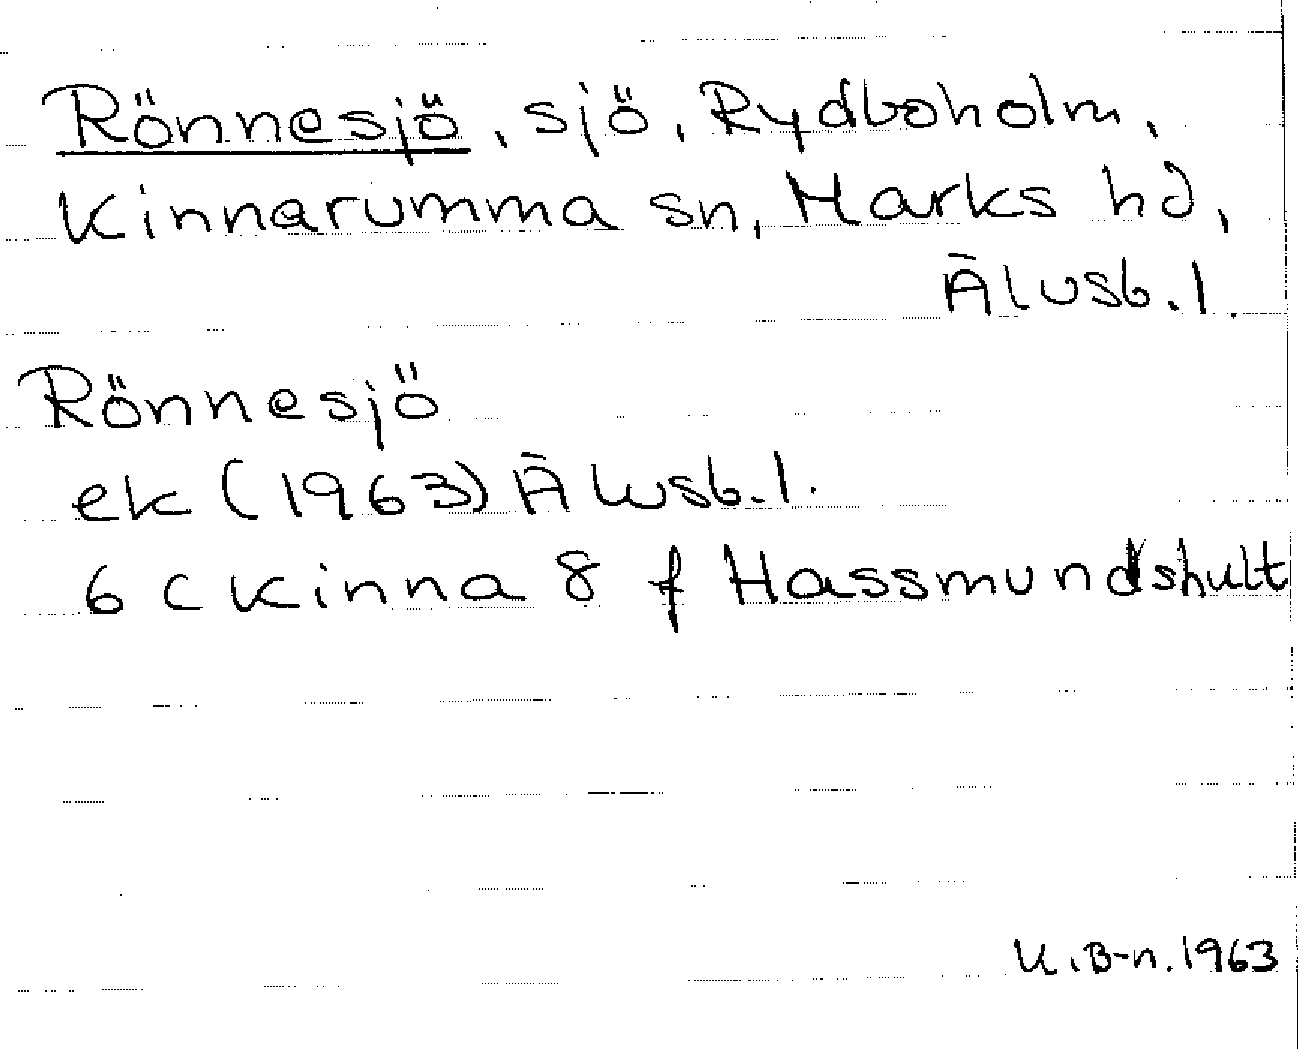 Rönnesjö, sjö, Rydboholm,
Kinnarumma sn, Marks hd,
Älvsb. l.
Rönnesjö
ek (1963) Älvsb. l.
6 C Kinna 8 f Hassmundshult
K. B-n. 1963